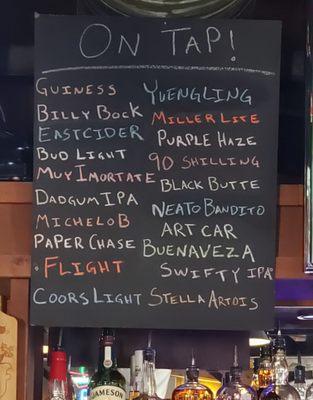 ON TAP!
GUINESS
BILLY BOCK
EASTCIDER
BUD LIGHT
MUY IMORTATE
DADGUM IPA
MICHELOB
PAPER CHASE
FLIGHT
COORS LIGHT
YUENGLING
MILLER LITE
PURPLE HAZE
90 SHILLING
BLACK BUTTE
NEATO BANDITO
ART CAR
BUENAVEZA
SWIFTY IPA
STELLA ARTOIS
JAMESON